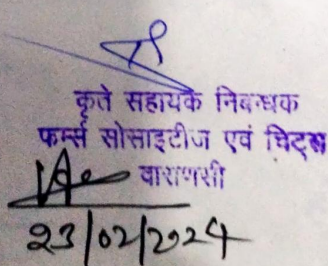 कृते सहायक निबन्धक
फर्म्स सोसाइटीज एवं चिट्स
वाराणसी
23/02/2024